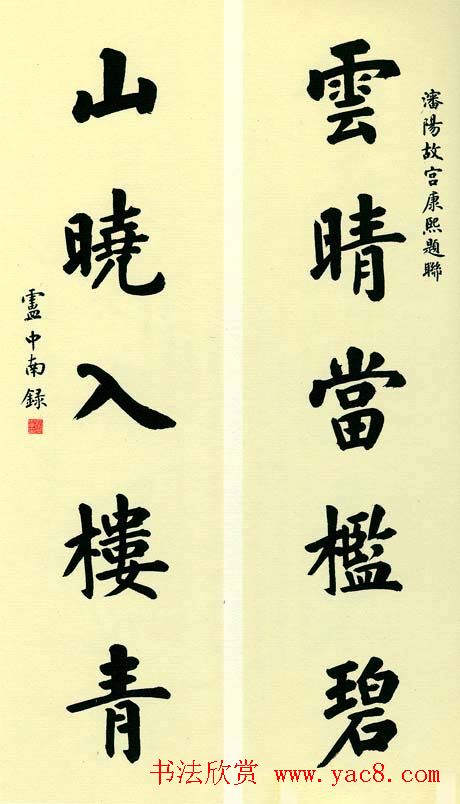 瀋陽故宫康熙題聯
雲晴當檻碧
山曉入樓青
盧中南録
书法欣赏 www.yac8.com